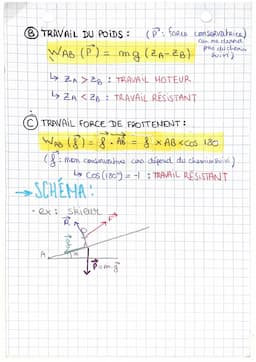 Ⓑ TRAVAIL DU POIDS : (P⃗ : force conservatrice)
car ne dépend
pas du chemin
suivi)
W_AB (P⃗) = mg (Z_A - Z_B)
↳ Z_A > Z_B : TRAVAIL MOTEUR
↳ Z_A < Z_B : TRAVAIL RÉSISTANT
Ⓒ TRAVAIL FORCE DE FROTTEMENT :
W_AB (f⃗) = f⃗ · AB⃗ = f × AB × cos 180
(f⃗ : non conservative car dépend du chemin suivi)
↳ cos (180°) = -1 : TRAVAIL RÉSISTANT
→ SCHÉMA :
• ex : skieur
R⃗
F⃗
A
P⃗ = m·g⃗